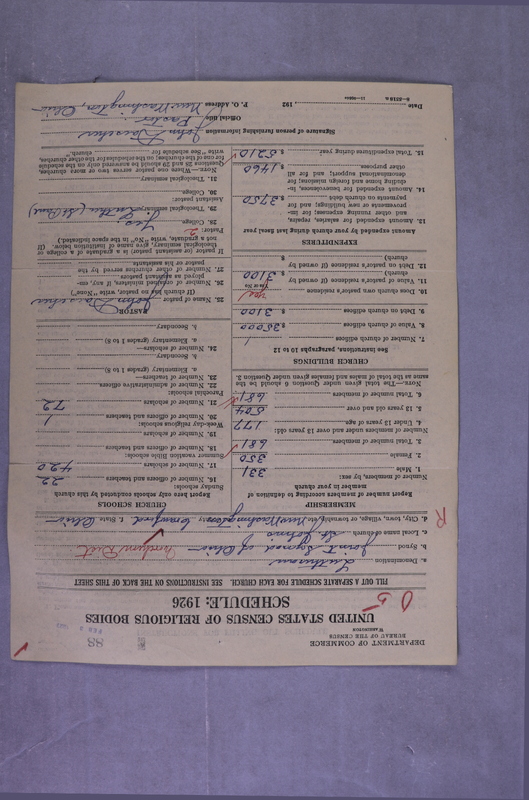 DEPARTMENT OF COMMERCE
BUREAU OF THE CENSUS
WASHINGTON
88
UNITED STATES CENSUS OF RELIGIOUS BODIES
SCHEDULE: 1926
FILL OUT A SEPARATE SCHEDULE FOR EACH CHURCH. SEE INSTRUCTIONS ON THE BACK OF THIS SHEET
a. Denomination Lutheran
b. Synod Joint Synod of Ohio
c. Local name of church St. Johns
d. City, town, village, or township New Washington County Crawford State Ohio
MEMBERSHIP
Report number of members according to definition of member in your church
Number of members, by sex:
1. Male 331
2. Female 350
3. Total number of members 681
Number of members under and over 13 years old:
4. Under 13 years of age 177
5. 13 years old and over 504
6. Total number of members 681
NOTE.—The total given under Question 6 should be the same as the total of males and females given under Question 3.
CHURCH BUILDINGS
See instructions, paragraphs 10 to 12
7. Number of church edifices 1
8. Value of church edifices $ 35000
9. Debt on church edifices $ 3100
10. Does church own pastor's residence yes
Yes or No
11. Value of pastor's residence (if owned by church) $ 3100
12. Debt on pastor's residence (if owned by church) $
EXPENDITURES
Amount expended by your church during last fiscal year
13. Amount expended for salaries, repairs, and other running expenses; for improvements or new buildings; and for payments on church debt $ 3750
14. Amount expended for benevolences, including home and foreign missions; for denominational support; and for all other purposes $ 1460
15. Total expenditures during year $ 5210
CHURCH SCHOOLS
Report here only schools conducted by this church
Sunday schools:
16. Number of officers and teachers 22
17. Number of scholars 420
Summer vacation Bible schools:
18. Number of officers and teachers
19. Number of scholars
Week-day religious schools:
20. Number of officers and teachers 1
21. Number of scholars 72
Parochial schools:
22. Number of administrative officers
23. Number of teachers—
a. Elementary (grades 1 to 8)
b. Secondary
24. Number of scholars—
a. Elementary (grades 1 to 8)
b. Secondary
PASTOR
25. Name of pastor John
(If church has no pastor, write "None")
26. Number of ordained ministers, if any, employed as assistant pastors
27. Number of other churches served by the pastor or his assistants
If pastor (or assistant pastor) is a graduate of a college or theological seminary, give name of institution below. (If not a graduate, write "No" in the space indicated.)
Pastor: 2
28. College
29. Theological seminary Luther (St. Paul)
Assistant pastor:
30. College
31. Theological seminary
NOTE.—Where one pastor serves two or more churches, Questions 25 and 26 should be answered only on the Schedule for one of the churches; on the schedules for the other churches, write "See schedule for church."
Signature of person furnishing information John
Official title Pastor
P. O. Address New Washington, Ohio
Date 192